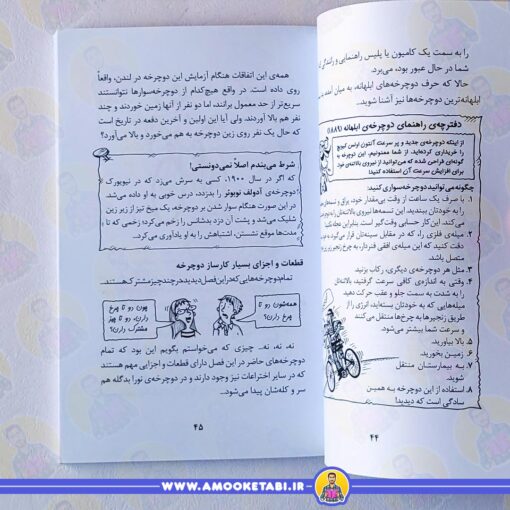 را به سمت یک کامیون یا پلیس راهنمایی و رانندگی که از کنار
شما در حال عبور بود، می‌برد.
حالا که حرف دوچرخه‌های ابلهانه، به میان آمد
ابلهانه‌ترین دوچرخه‌ها نیز آشنا شوید..
دفترچه‌ی راهنمای دوچرخه‌ی ابلهانه (۱۸۸۹)
از اینکه دوچرخه‌ی جدید و پر سرعت آنتون اولسن کمپنی
را خریداری کرده‌اید، از شما ممنونیم. این دوچرخه به
گونه‌ای طراحی شده که می‌توانید از نیروی بالاتنه‌تان
برای افزایش سرعت آن استفاده کنید.
چگونه می‌توانید دوچرخه‌سواری کنید:
۱. با صرف یک ساعت از وقت بی‌مقدار خود، یراق و تسمه‌هایی
را به خودتان ببندید. این تسمه‌ها نیروی بالاتنه‌تان را منتقل
می‌کنند. این کار حسابی وقت‌گیر است، بنابراین عجله نکنید.
۲. میله‌ی فلزی را، که در مقابل سینه‌تان قرار
دقت کنید که این میله‌ی افقی فنردار، به چرخ زنجیر
متصل باشد.
۳. مثل هر دوچرخه‌ی دیگری، رکاب بزنید.
۴. وقتی به اندازه‌ی کافی سرعت گرفتید، بالاتنه‌تان
را به شدت به سمت جلو و عقب حرکت دهید
میله‌هایی که به خودتان بسته‌اید، انرژی را از
طریق زنجیرها به چرخ‌ها منتقل می‌کنند
و سرعت شما بیشتر می‌شود.
۵. بالا بیاورید.
۶. زمین بخورید.
۷. به بیمارستان منتقل
شوید.
۸. استفاده از این دوچرخه به همین
سادگی است که دیدید!
۴۴
همه‌ی این اتفاقات هنگام آزمایش این دوچرخه در لندن، واقعاً
روی داده است. در واقع هیچ‌کدام از دوچرخه‌سوارها نتوانستند
سریع‌تر از حد معمول برانند، اما دو نفر از آنها زمین خوردند و چند
نفر هم بالا آوردند. ولی آیا این اولین و آخرین دفعه در تاریخ است
که حال یک نفر روی زین دوچرخه به هم می‌خورد و بالا می‌آورد؟
شرط می‌بندم اصلاً نمی‌دونستی!
که اگر در سال ۱۹۰۰، کسی به سرش می‌زد که در نیویورک
دوچرخه‌ی آدولف نوبوئر را بدزدد، درس خوبی به او داده می‌شد.
در این صورت هنگام سوار شدن بر دوچرخه، یک میخ تیز از زیر زین
شلیک می‌شد و پشت آن دزد بدشانس را زخم می‌کرد؛ زخمی که تا
مدت‌ها موقع نشستن، اشتباهش را به او یادآوری می‌کرد...
قطعات و اجزای بسیار کارساز دوچرخه
تمام دوچرخه‌هایی که در این فصل دیدید در چند چیز مشترک هستند.
همه‌شون دو تا
چرخ دارن؟
چون دو تا چرخ
دارن، دو تا چیز
مشترک دارن؟
نه، نه، نه... چیزی که می‌خواستم بگویم این بود که تمام
دوچرخه‌های حاضر در این فصل دارای قطعات و اجزایی مهم هستند
که در سایر اختراعات نیز وجود دارند و در دوچرخه‌ی نورا بدگله هم
سر و کله‌شان پیدا می‌شود...
۴۵
WWW.AMOOKETABI.IR